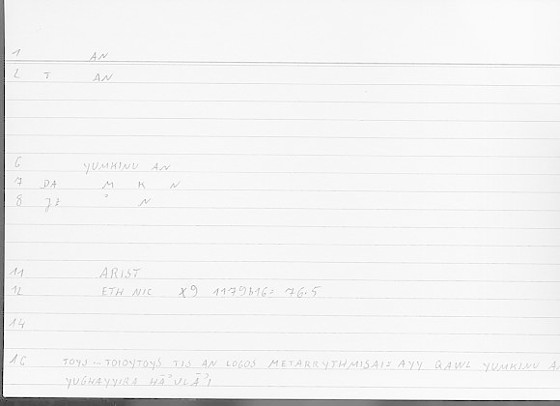 1 AN
2 T AN
6 YUMKINU AN
7 DA M K N
8 JZ ° N
11 ARIST
12 ETH NIC X9 1179b16= 76.5
14
16 TOYS - TOIOYTOYS TIS AN LOGOS METARRYTHMISAI= AYY QAWL YUMKINU AN
YUGHAYYIRA HĀ°ULĀ°I